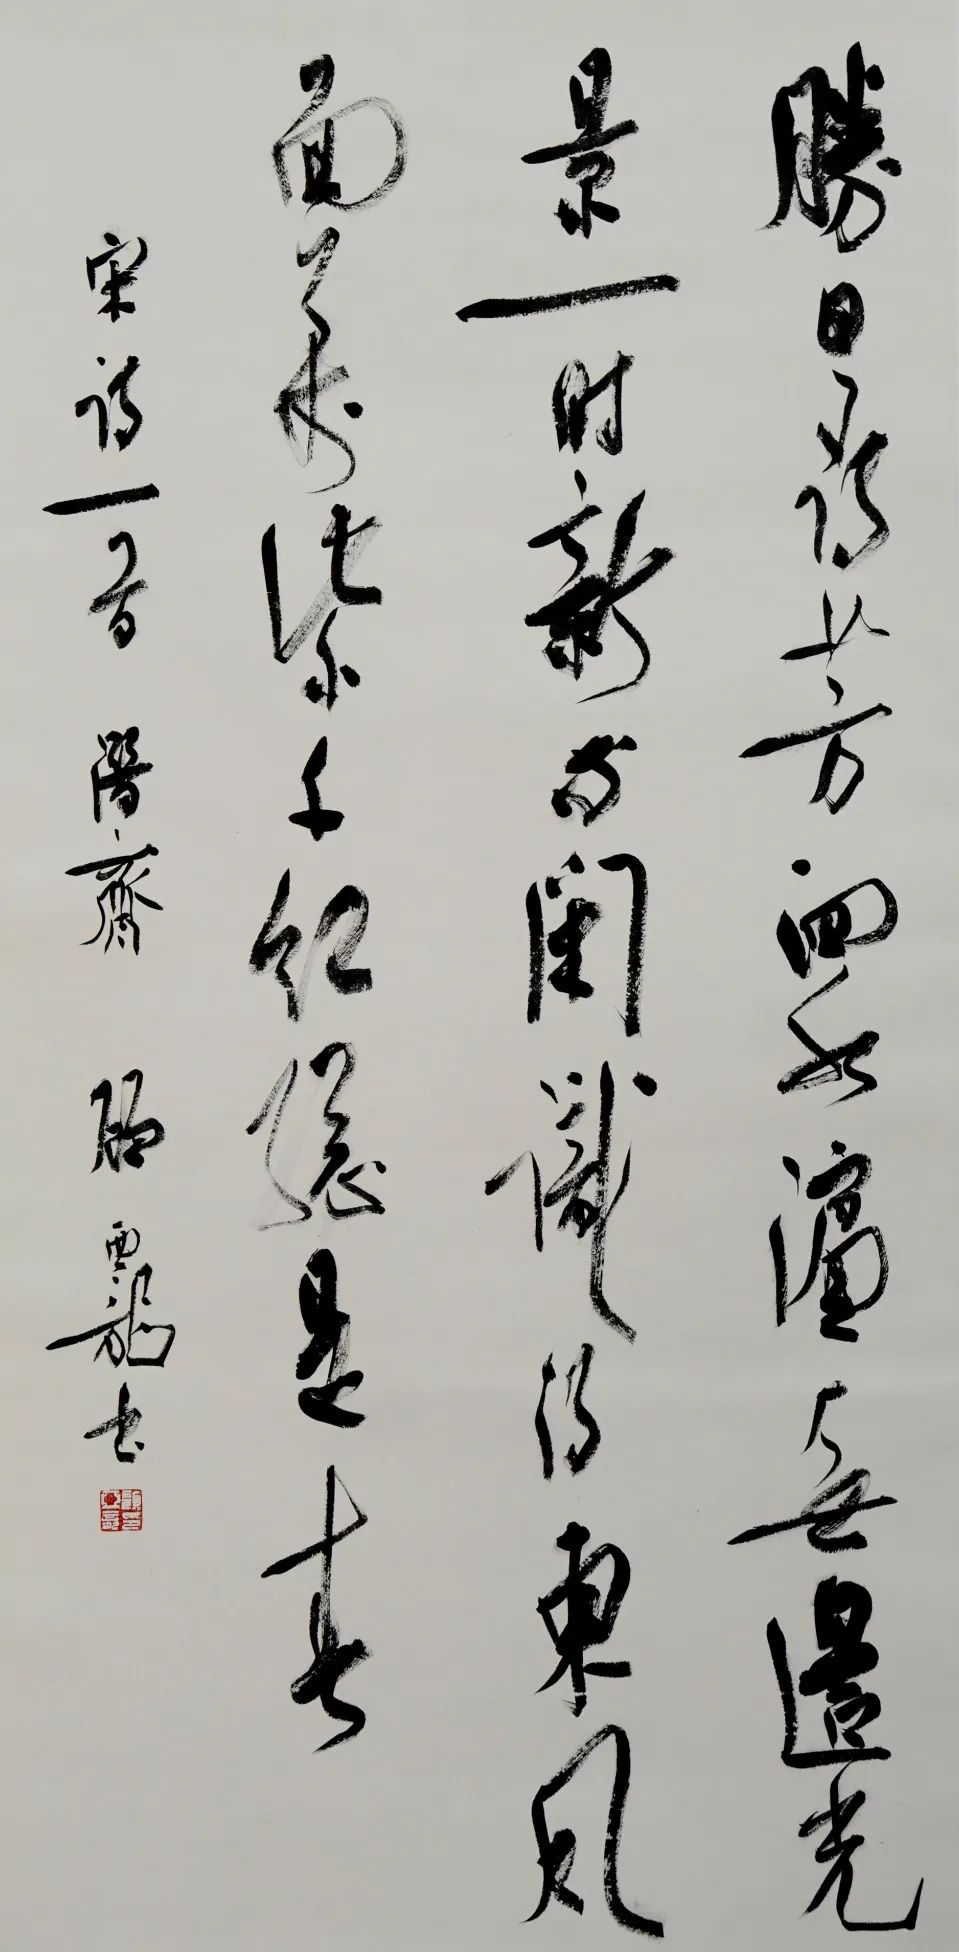 勝日尋芳泗水濱無邊光
景一時新等閑識得東風
面萬紫千紅總是春
宋詩一首 潛齋 顧亞龍書